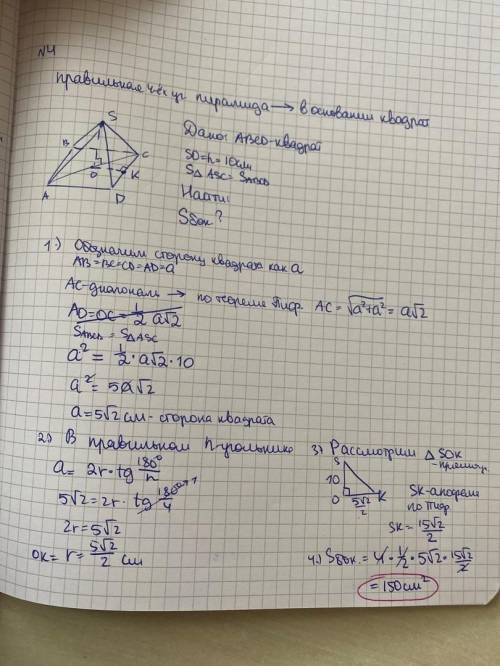 №4
правильная чет. уг. пирамида → в основании квадрат
S
B
C
O
K
A
D
Дано: ABCD-квадрат
SO=h=10см
S△ ASC = SABCD
Найти:
Sбок?
1.) Обозначим сторону квадрата как a
AB=BC=CD=AD=a
AC-диагональ → по теореме Пиф. AC=√a²+a² = a√2
AO=OC=1/2 a√2
SABCD = S△ASC
a² = 1/2 · a√2 · 10
a² = 5a√2
a=5√2 см - сторона квадрата
2.) В правильном n-угольнике
a = 2r · tg 180°/n
5√2 = 2r · tg 180°/4 1
2r = 5√2
OK = r = 5√2/2 см
3) Рассмотрим △ SOK
-прямоуг.
S
10
O
5√2/2
K
SK-апофема
по Пиф.
SK = 15√2/2
4.) Sбок. = 4 · 1/2 · 5√2 · 15√2/2
= 150 см²